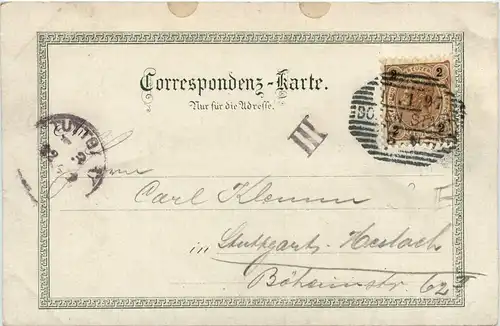 Correspondenz-Karte.
Nur für die Adresse.
2 2
2 2
III
Carl Klemm
in Stuttgart-Heslach
Böheimstr 62 II